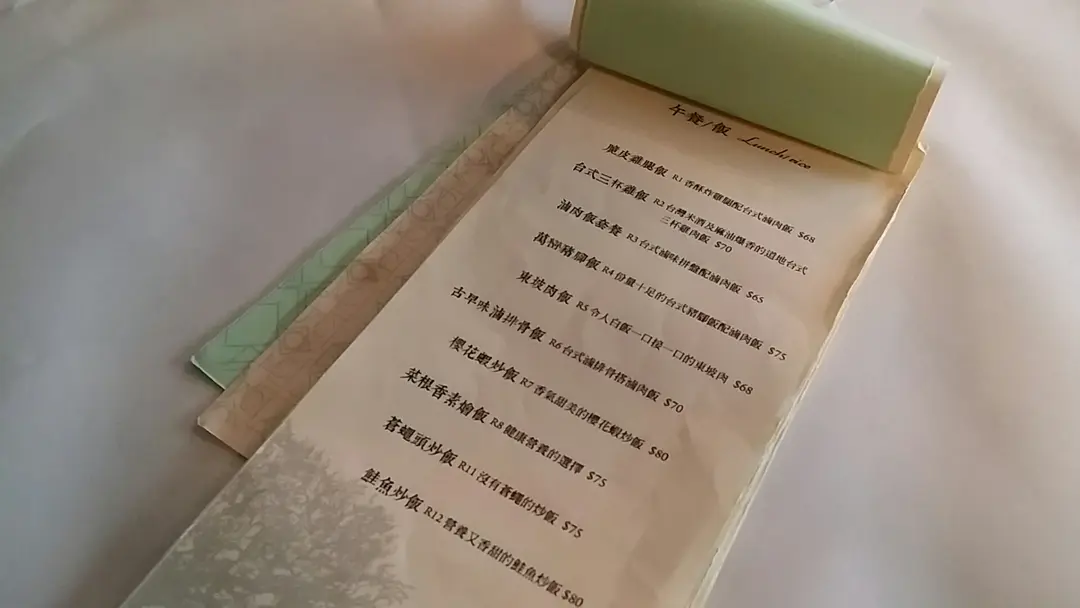 午餐/飯 Lunch/rice
脆皮雞腿飯 R1 香酥炸雞腿配台式滷肉飯 $68
台式三杯雞飯 R2 台灣米酒及麻油爆香的道地台式
三杯雞肉飯 $70
滷肉飯套餐 R3 台式滷味拼盤配滷肉飯 $65
萬巒豬腳飯 R4 份量十足的台式豬腳飯配滷肉飯 $75
東坡肉飯 R5 令人白飯一口接一口的東坡肉 $68
古早味滷排骨飯 R6 台式滷排骨搭滷肉飯 $70
櫻花蝦炒飯 R7 香氣甜美的櫻花蝦炒飯 $80
菜根香素燴飯 R8 健康營養的選擇 $75
蒼蠅頭炒飯 R11 沒有蒼蠅的炒飯 $75
鮭魚炒飯 R12 營養又香甜的鮭魚炒飯 $80